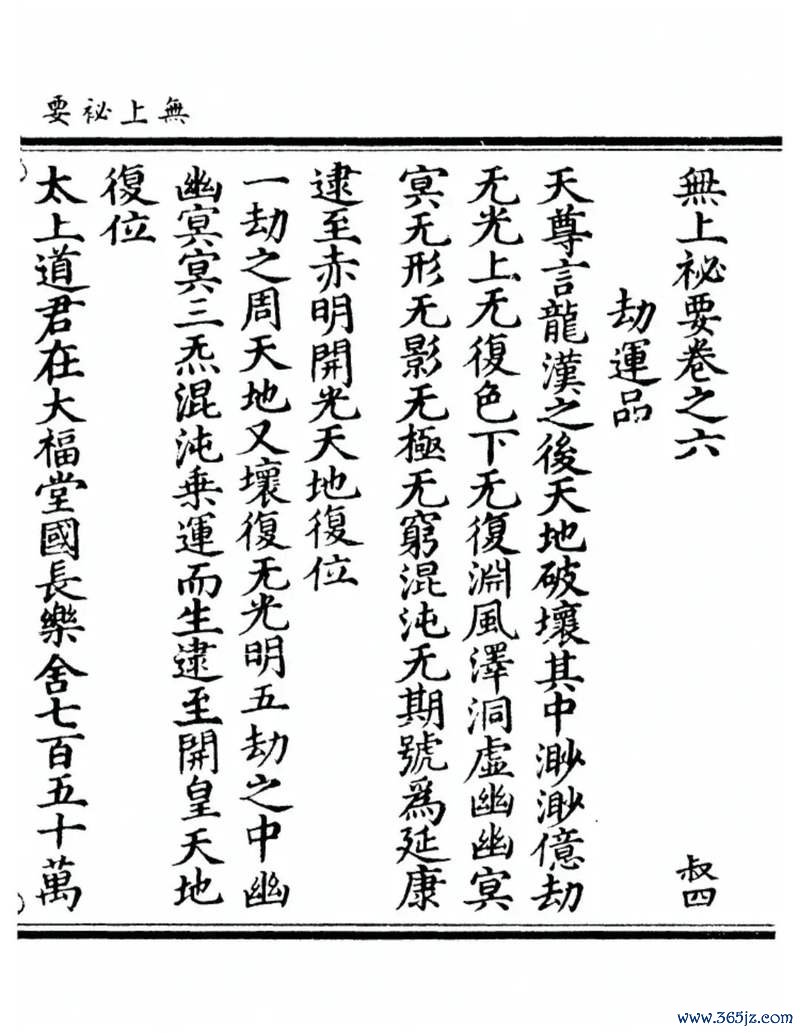 無上祕要
無上祕要卷之六
叔四
劫運品
天尊言龍漢之後天地破壞其中渺渺億劫
无光上无復色下无復淵風澤洞虛幽幽冥
冥无形无影无極无窮混沌无期號爲延康
逮至赤明開光天地復位
一劫之周天地又壞復无光明五劫之中幽
幽冥冥三炁混沌乗運而生逮至開皇天地
復位
太上道君在大福堂國長樂舍七百五十萬
www.365jz.com